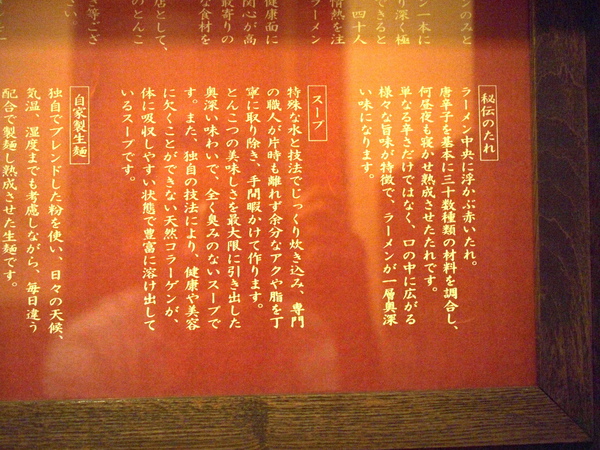 のみと
ン一本に
り深く極
できると
四十人
情熱を注
ラーメン
健康面に
関心が高
最寄りの
な食材を
店として、
のとんこ
き等ござ
さい。
秘伝のたれ
ラーメン中央に浮かぶ赤いたれ。
唐辛子を基本に三十数種類の材料を調合し、
何昼夜も寝かせ熟成させたたれです。
単なる辛さだけではなく、口の中に広がる
様々な旨味が特徴で、ラーメンが一層奥深
い味になります。
スープ
特殊な水と技法でじっくり炊き込み、専門
の職人が片時も離れず余分なアクや脂を丁
寧に取り除き、手間暇かけて作ります。
とんこつの美味しさを最大限に引き出した
奥深い味わいで、全く臭みのないスープで
す。また、独自の技法により、健康や美容
に欠くことができない天然コラーゲンが、
体に吸収しやすい状態で豊富に溶け出して
いるスープです。
自家製生麺
独自でブレンドした粉を使い、日々の天候、
気温、湿度までも考慮しながら、毎日違う
配合で製麺し熟成させた生麺です。